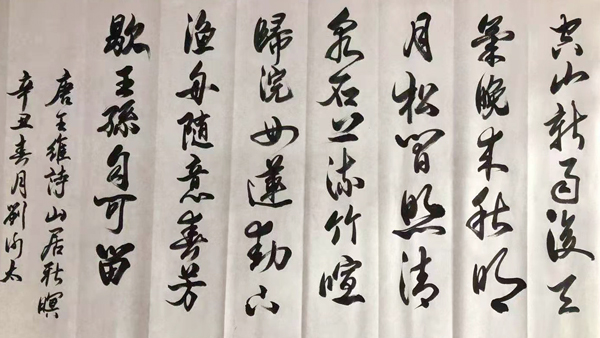 空山新雨後天
氣晚来秋明
月松間照清
泉石上流竹喧
歸浣女蓮動下
渔舟隨意春芳
歇王孫自可留
唐王維詩山居秋暝
辛丑春月劉太